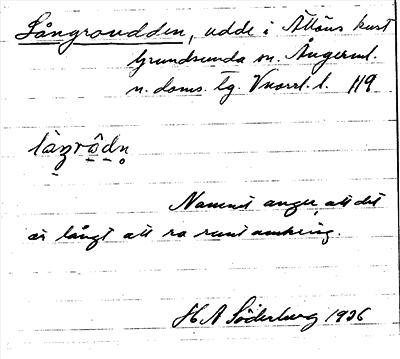 Långroudden, udde i Ällöns kust
Grundsunda sn. Ångerml.
n. doms. lg. Vnorrl. l. 119
làŋrôdn̥
Namnet anger, att det
är långt att ro runt omkring.
H A Söderberg 1936